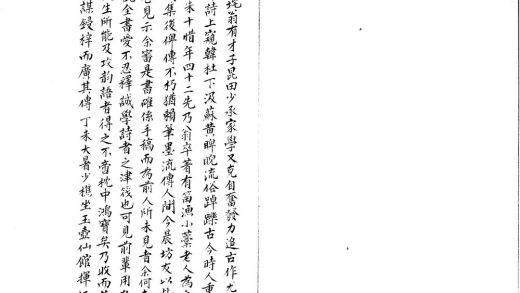 垞翁有才子昆田少承家學又克自奮發力追古作尤
詩上窺韓杜下汲蘇黄睥睨流俗踔躒古今時人重
未十腊年四十二先乃翁卒著有笛漁小藁老人為
集後俾傳不朽猶賴筆墨流傳人間今晨坊友以
見示余審是書確係手稿而為前人所未見者余何
全書愛不忍釋誠學詩者之津筏也可見前輩用
生所能及攻韵語者得之不啻枕中鴻寶矣乃收而
謀鋟梓而廣其傳丁未大暑少樵坐玉壺仙館揮